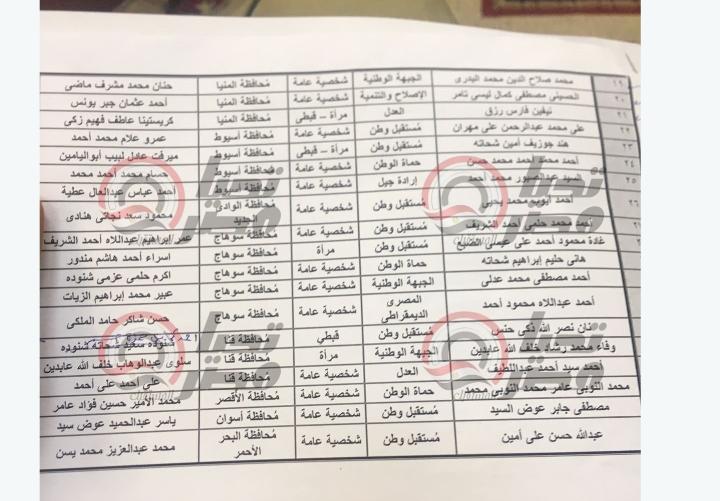 ١٩ محمد صلاح الدين محمد البدرى الجبهة الوطنية شخصية عامة مُحافظة المنيا حنان محمد مشرف ماضى
٢٠ الحسينى مصطفى كمال ليسى تامر الإصلاح والتنمية شخصية عامة مُحافظة المنيا أحمد عثمان جبر يونس
٢١ نيفين فارس رزق العدل مرأة – قبطى مُحافظة المنيا كريستينا عاطف فهيم زكى
٢٢ على محمد عبدالرحمن على مهران مُستقبل وطن شخصية عامة مُحافظة أسيوط عمرو علام محمد أحمد
٢٣ هند جوزيف أمين شحاته مُستقبل وطن مرأة – قبطى مُحافظة أسيوط ميرفت عادل لبيب أبواليامين
٢٤ أحمد محمد أحمد محمد حسن حماة الوطن شخصية عامة مُحافظة أسيوط حسام محمد أحمد محمد
٢٥ السيد عبدالصبور محمد أحمد إرادة جيل شخصية عامة مُحافظة أسيوط أحمد عباس عبدالعال عطية
٢٦ أحمد أيوب محمد يحيى مُستقبل وطن شخصية عامة مُحافظة الوادى الجديد محمود سعد نجاتى هنادى
أحمد محمد حلمى أحمد الشريف مُستقبل وطن شخصية عامة مُحافظة سوهاج عمر إبراهيم عبداللاه أحمد الشريف
غادة محمود أحمد على مُستقبل وطن مرأة مُحافظة سوهاج اسراء أحمد هاشم مندور
هانى حليم إبراهيم شحاته حماة الوطن شخصية عامة مُحافظة سوهاج اكرم حلمى عزمى شنوده
أحمد مصطفى محمد عدلى الجبهة الوطنية شخصية عامة مُحافظة سوهاج عبير محمد إبراهيم الزيات
أحمد عبداللاه محمود أحمد المصرى الديمقراطى شخصية عامة مُحافظة سوهاج حسن شاكر حامد الملكى
نان نصر الله ذكى حنس مُستقبل وطن قبطى مُحافظة قنا شنوده سعيد شحاتة شنوده
وفاء محمد رشاد خلف الله عابدين الجبهة الوطنية مرأة مُحافظة قنا سلوى عبدالوهاب خلف الله عابدين
أحمد سيد أحمد عبداللطيف العدل شخصية عامة مُحافظة قنا على أحمد على أحمد
محمد النوبى عامر محمد النوبى محمد حماة الوطن شخصية عامة مُحافظة الأقصر محمد الأمير حسين فؤاد عامر
مصطفى جابر عوض السيد مُستقبل وطن شخصية عامة مُحافظة أسوان ياسر عبدالحميد عوض سيد
عبدالله حسن على أمين مُستقبل وطن شخصية عامة مُحافظة البحر الأحمر محمد عبدالعزيز محمد يسن
تحيا مصر